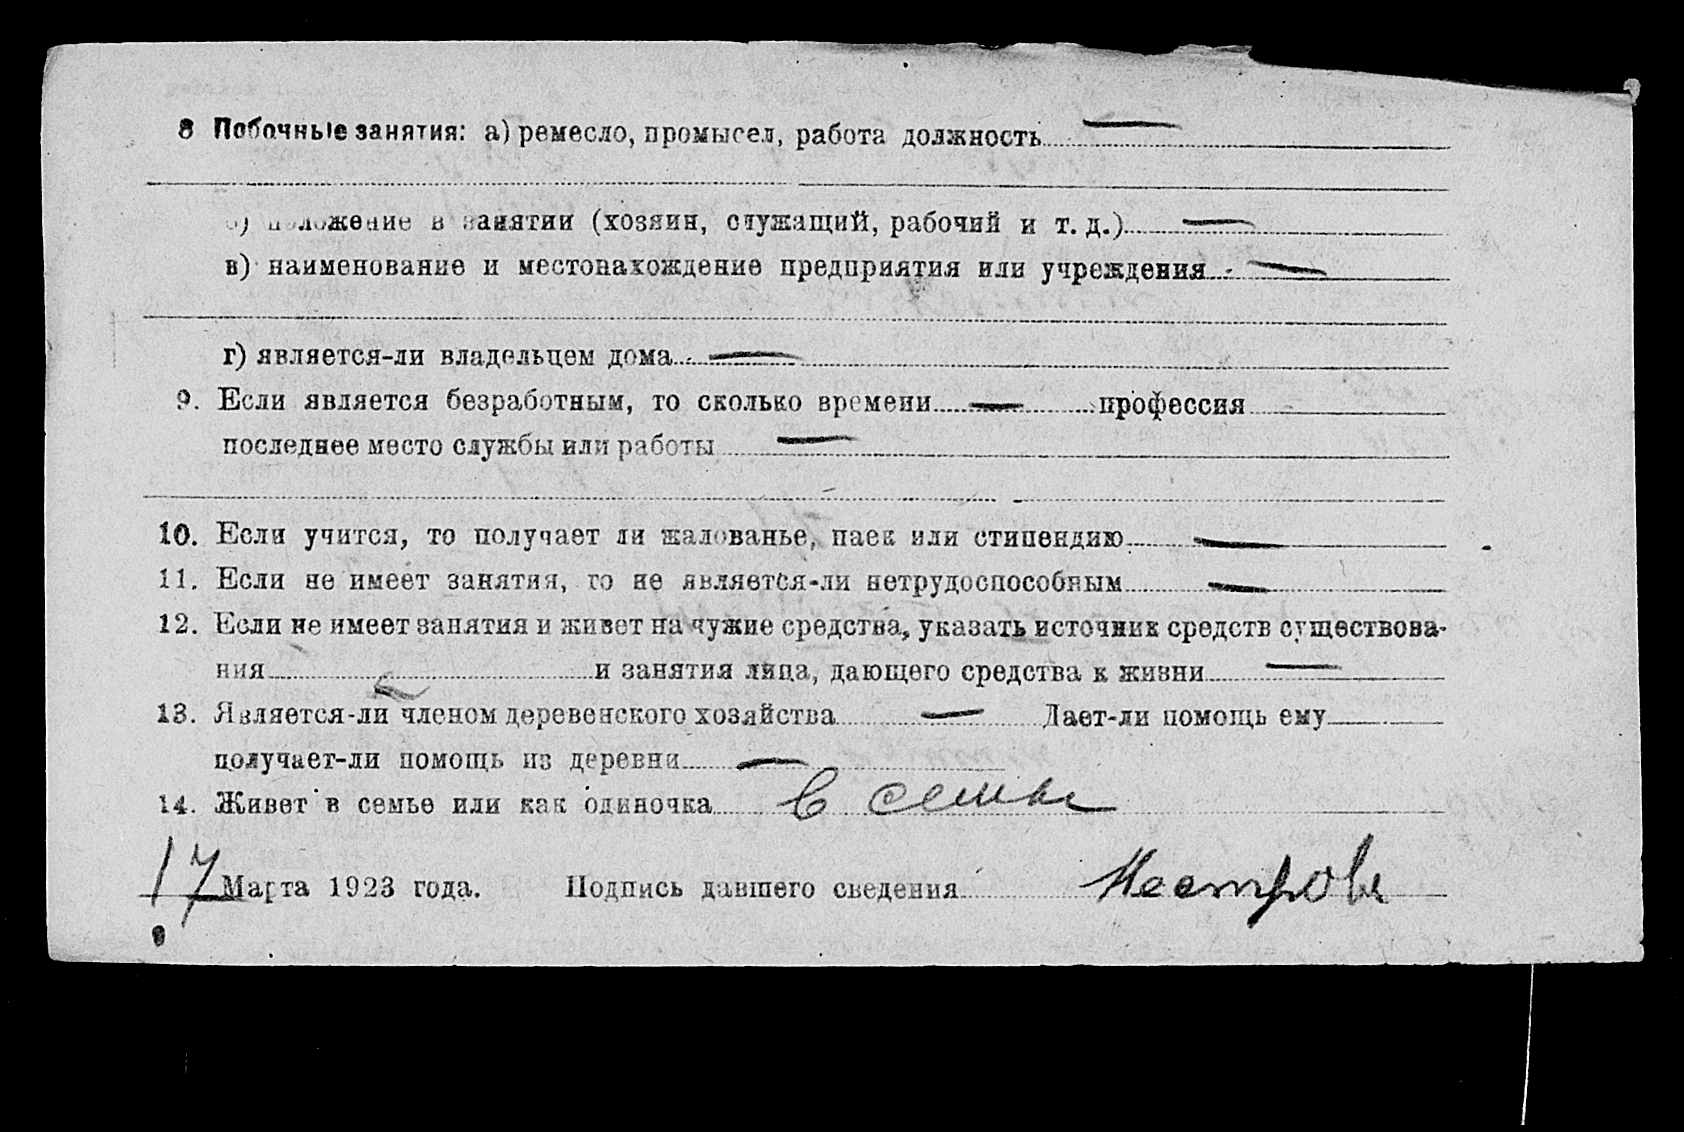 8 Побочные занятия: а) ремесло, промысел, работа должность —
б) положение в занятии (хозяин, служащий, рабочий и т. д.) —
в) наименование и местонахождение предприятия или учреждения —
г) является-ли владельцем дома —
9. Если является безработным, то сколько времени — профессия
последнее место службы или работы —
10. Если учится, то получает ли жалованье, паек или стипендию —
11. Если не имеет занятия, то не является-ли нетрудоспособным —
12. Если не имеет занятия и живет на чужие средства, указать источник средств существова-
ния и занятия лица, дающего средства к жизни —
13. Является-ли членом деревенского хозяйства — Дает-ли помощь ему
получает-ли помощь из деревни —
14. Живет в семье или как одиночка В семье
17 Марта 1923 года. Подпись давшего сведения